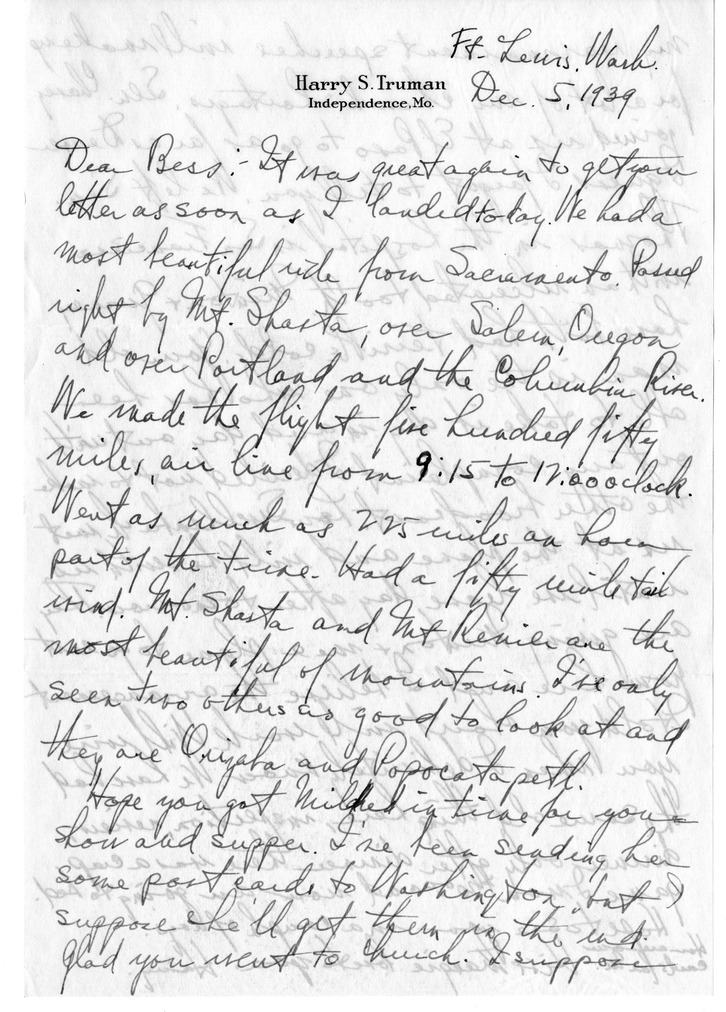 Ft. Lewis, Wash.
Harry S. Truman
Independence, Mo.
Dec. 5, 1939
Dear Bess:- It was great again to get your
letter as soon as I landed today. We had a
most beautiful ride from Sacramento. Passed
right by Mt. Shasta, over Salem, Oregon
and over Portland and the Columbia River.
We made the flight five hundred fifty
miles, air line from 9:15 to 12:00 oclock.
Went as much as 225 miles an hour
part of the time. Had a fifty mile tail
wind. Mt. Shasta and Mt Renier are the
most beautiful of mountains. I've only
seen two others as good to look at and
they are Orizaba and Popocatapetl.
Hope you got Mildred in time for your
show and supper. I've been sending her
some post cards to Washington, but I
suppose she'll get them in the end.
Glad you went to church. I suppose